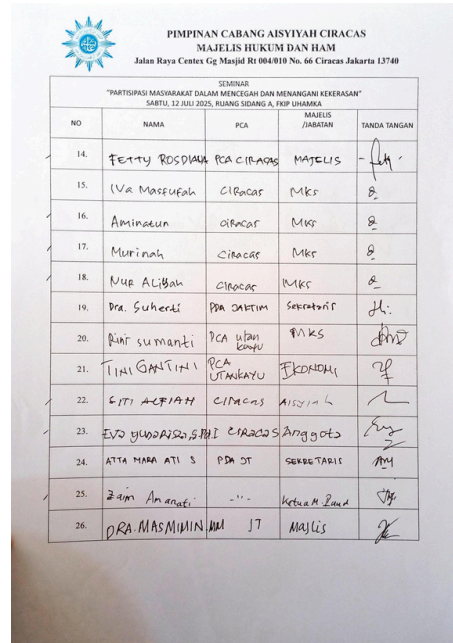 PIMPINAN CABANG AISYIYAH CIRACAS
MAJELIS HUKUM DAN HAM
Jalan Raya Centex Gg Masjid Rt 004/010 No. 66 Ciracas Jakarta 13740
SEMINAR
"PARTISIPASI MASYARAKAT DALAM MENCEGAH DAN MENANGANI KEKERASAN"
SABTU, 12 JULI 2025, RUANG SIDANG A, FKIP UHAMKA
NO NAMA PCA MAJELIS /JABATAN TANDA TANGAN
14. FETTY ROSDIANA PCA CIRACAS MAJELIS
15. Iva Masfufah Ciracas MKS
16. Aminatun Ciracas MKS
17. Murinah Ciracas MKS
18. Nur Alibah Ciracas MKS
19. Dra. Suherti PDA JAKTIM Sekretaris
20. Rini sumanti PCA utan kayu MKS
21. TINI GANTINI PCA UTANKAYU EKONOMI
22. SITI ALFIAH Ciracas Aisyiah
23. Eva Yunarisa, S.Pd.I CIRACAS Anggota
24. ATTA MARA ATI S PDA JT SEKRETARIS
25. Zaim Amanati -"- Ketua M. Paud
26. DRA. MASMIMIN. MM JT Majlis